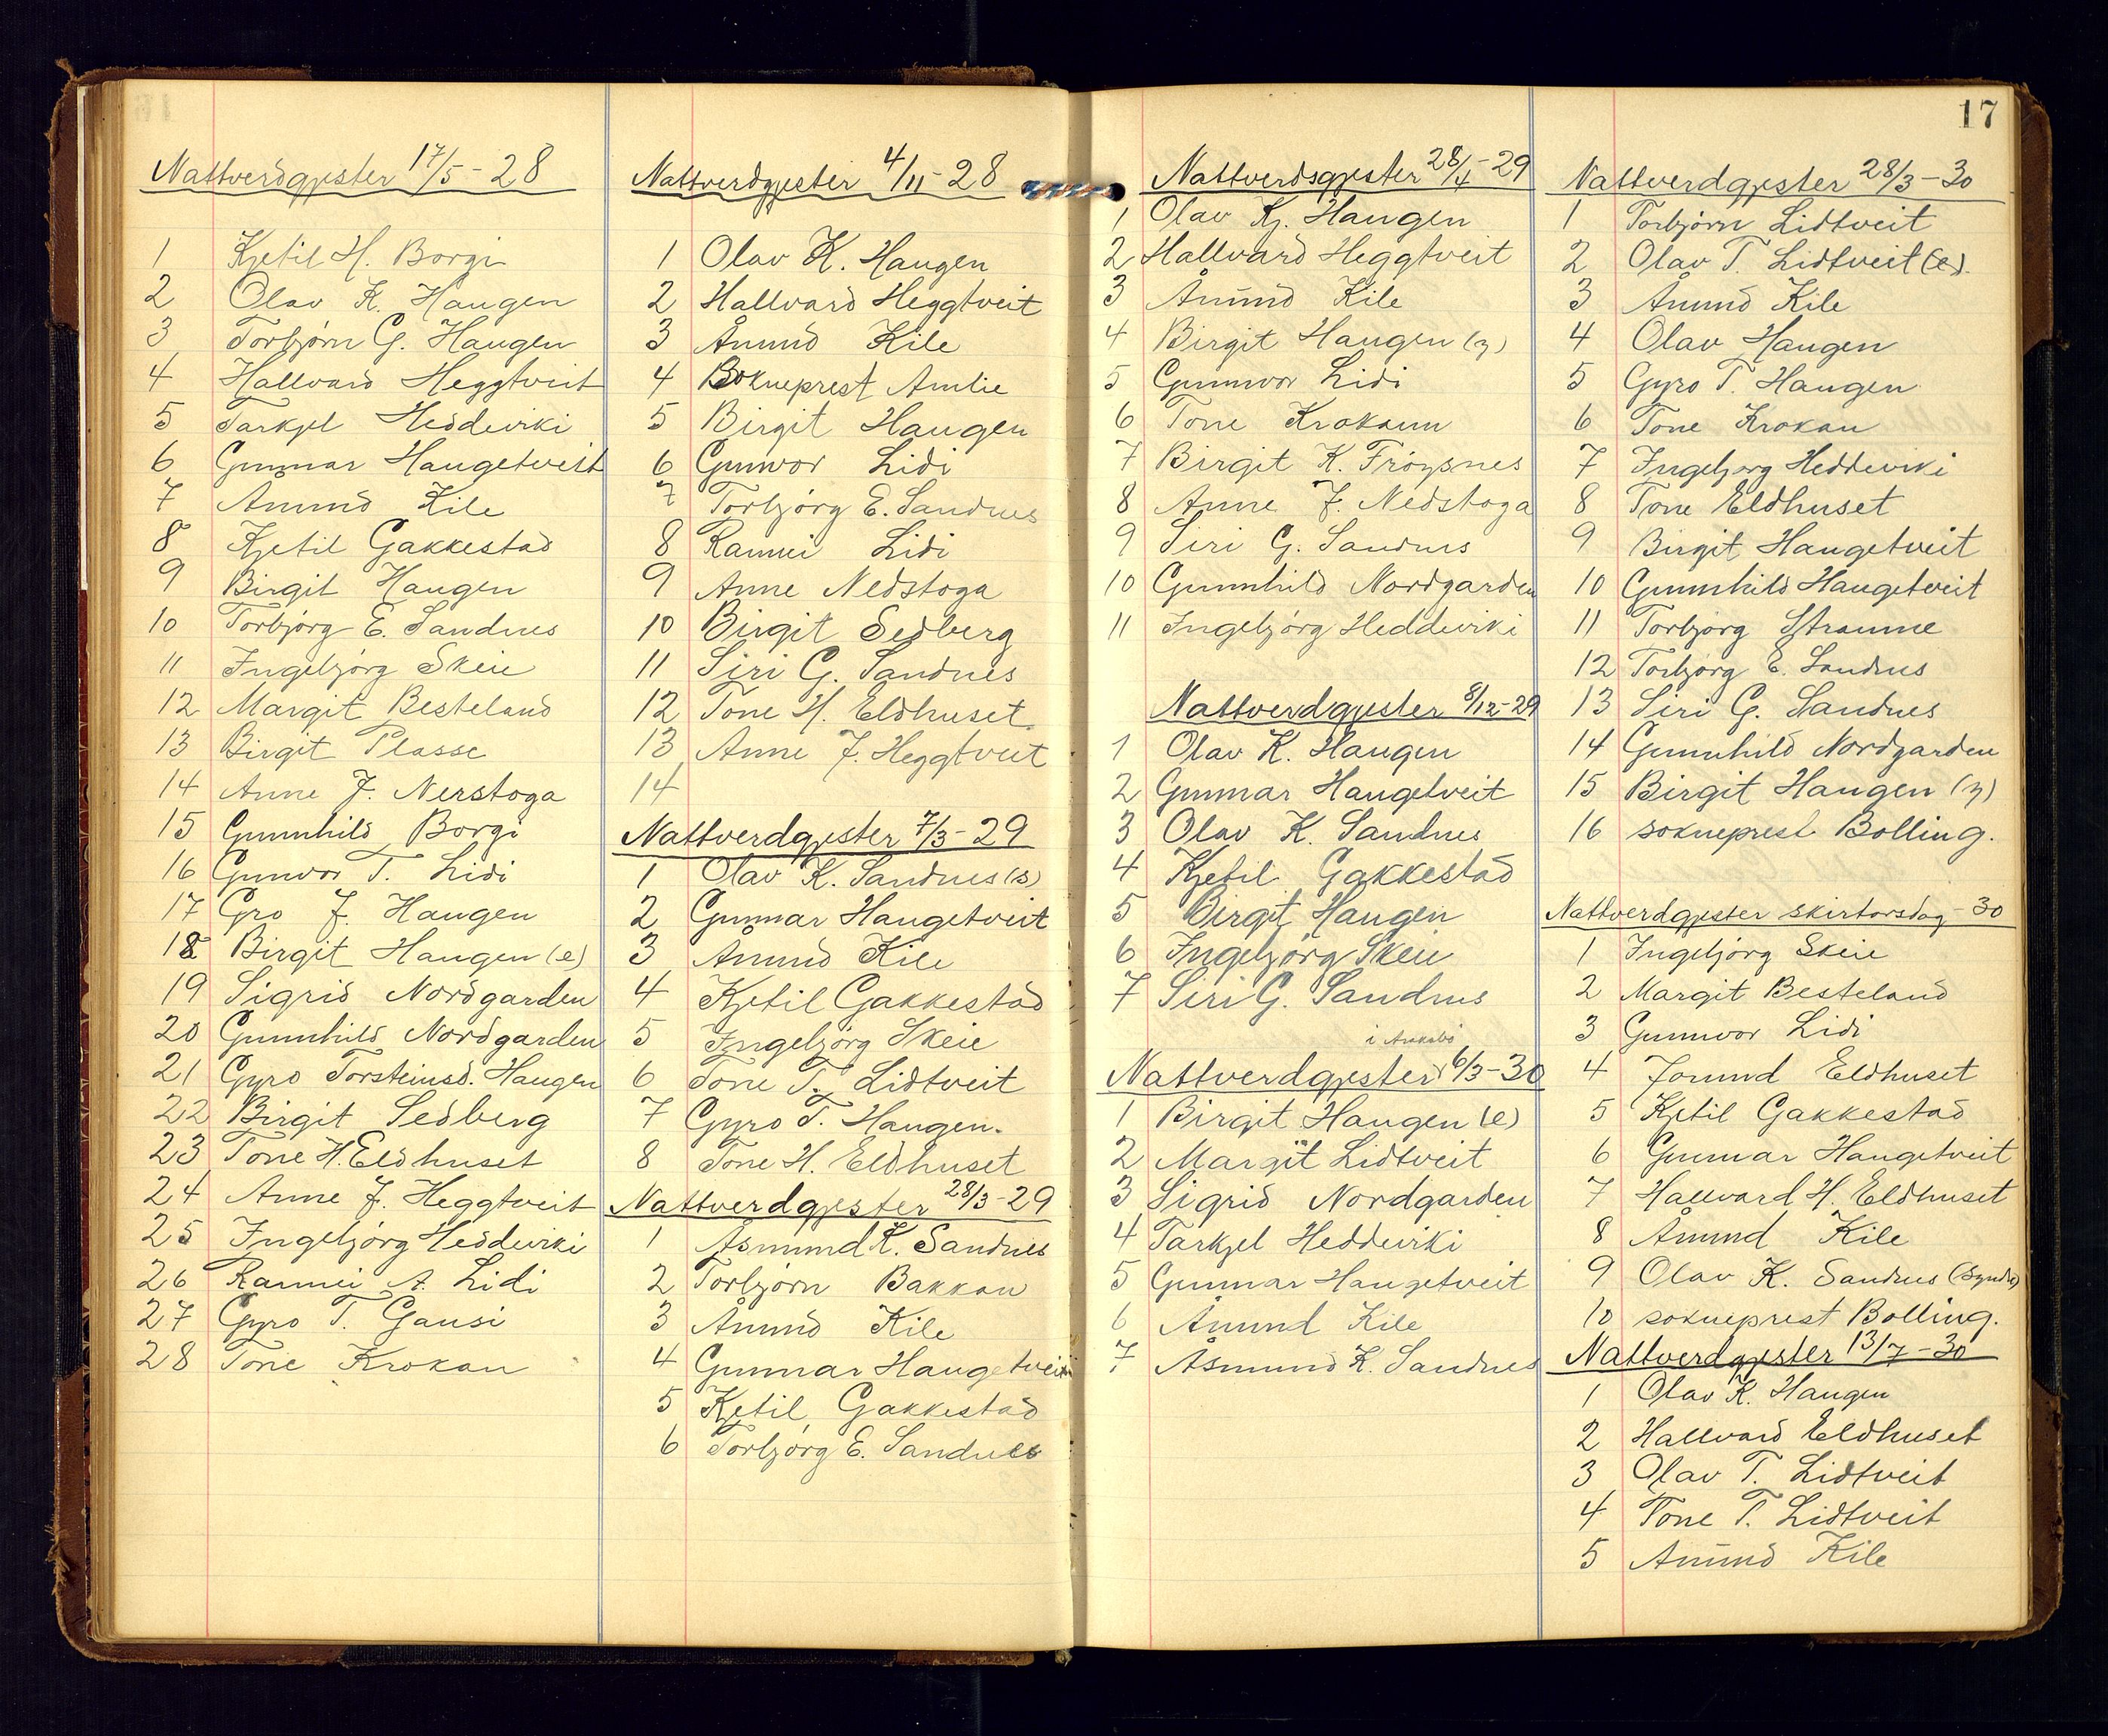 Nattverdgjester 17/5-28
1 Kjetil H. Borgi
2 Olav K. Haugen
3 Torbjørn G. Haugen
4 Hallvard Heggtveit
5 Tarkjel Heddevirki
6 Gunnar Haugetveit
7 Åmund Kile
8 Kjetil Gakkestad
9 Birgit Haugen
10 Torbjørg E. Sandnes
11 Ingebjørg Skeie
12 Margit Besteland
13 Birgit Plasse
14 Anne J. Nerstoga
15 Gunnhild Borgi
16 Gunvor T. Lidi
17 Gro J. Haugen
18 Birgit Haugen (e)
19 Sigrid Nordgarden
20 Gunnhild Nordgarden
21 Gyro Torsteinsd. Haugen
22 Birgit Sedberg
23 Tone H. Eldhuset
24 Anne J. Heggtveit
25 Ingebjørg Heddevirki
26 Rannei A. Lidi
27 Gyro T. Gausi
28 Tone Krokan
Nattverdgjester 4/11-28
1 Olav K. Haugen
2 Hallvard Heggtveit
3 Åmund Kile
4 Sokneprest Amlie
5 Birgit Haugen
6 Gunvor Lidi
7 Torbjørg E. Sandnes
8 Rannei Lidi
9 Anne Nedstoga
10 Birgit Sedberg
11 Siri G. Sandnes
12 Tone H. Eldhuset
13 Anne J. Heggtveit
14
Nattverdgjester 7/3-29
1 Olav K. Sandnes (s)
2 Gunnar Haugetveit
3 Åmund Kile
4 Kjetil Gakkestad
5 Ingebjørg Skeie
6 Tone T. Lidtveit
7 Gyro T. Haugen.
8 Tone H. Eldhuset
Nattverdgjester 28/3-29
1 Åsmund K. Sandnes
2 Torbjørn Bakkan
3 Åmund Kile
4 Gunnar Haugetveit
5 Kjetil Gakkestad
6 Torbjørg E. Sandnes
17
Nattverdsgjester 28/4-29
1 Olav Kj. Haugen
2 Hallvard Heggtveit
3 Åmund Kile
4 Birgit Haugen (y)
5 Gunnvor Lidi
6 Tone Krokann
7 Birgit K. Frøysnes
8 Anne J. Nedstoga
9 Siri G. Sandnes
10 Gunnhild Nordgarden
11 Ingebjørg Heddevirki
Nattverdgjester 8/12-29
1 Olav K. Haugen
2 Gunnar Haugetveit
3 Olav K. Sandnes
4 Kjetil Gakkestad
5 Birgit Haugen
6 Ingebjørg Skeie
7 Siri G. Sandnes
i
Nattverdgjester 6/3-30
1 Birgit Haugen (e)
2 Margit Lidtveit
3 Sigrid Nordgarden
4 Tarkjel Heddevirki
5 Gunnar Haugetveit
6 Åmund Kile
7 Åsmund K. Sandnes
Nattverdgjester 28/3-30
1 Torbjørn Lidtveit
2 Olav T. Lidtveit (e).
3 Åmund Kile
4 Olav Haugen
5 Gyro T. Haugen
6 Tone Krokan
7 Ingebjørg Heddevirki
8 Tone Eldhuset
9 Birgit Haugetveit
10 Gunnhild Haugetveit
11 Torbjørg Straume
12 Torbjørg E. Sandnes
13 Siri G. Sandnes
14 Gunnhild Nordgarden
15 Birgit Haugen (y)
16 sokneprest Bolling.
Nattverdgjester skirtorsdag - 30
1 Ingebjørg Skeie
2 Margit Besteland
3 Gunnvor Lidi
4 Jorund Eldhuset
5 Kjetil Gakkestad
6 Gunnar Haugetveit
7 Hallvard H. Eldhuset
8 Åmund Kile
9 Olav K. Sandnes (Syndre)
10 sokneprest Bolling.
Nattverdgjester 13/7-30
1 Olav K. Haugen
2 Hallvard Eldhuset
3 Olav T. Lidtveit
4 Tone T. Lidtveit
5 Åmund Kile